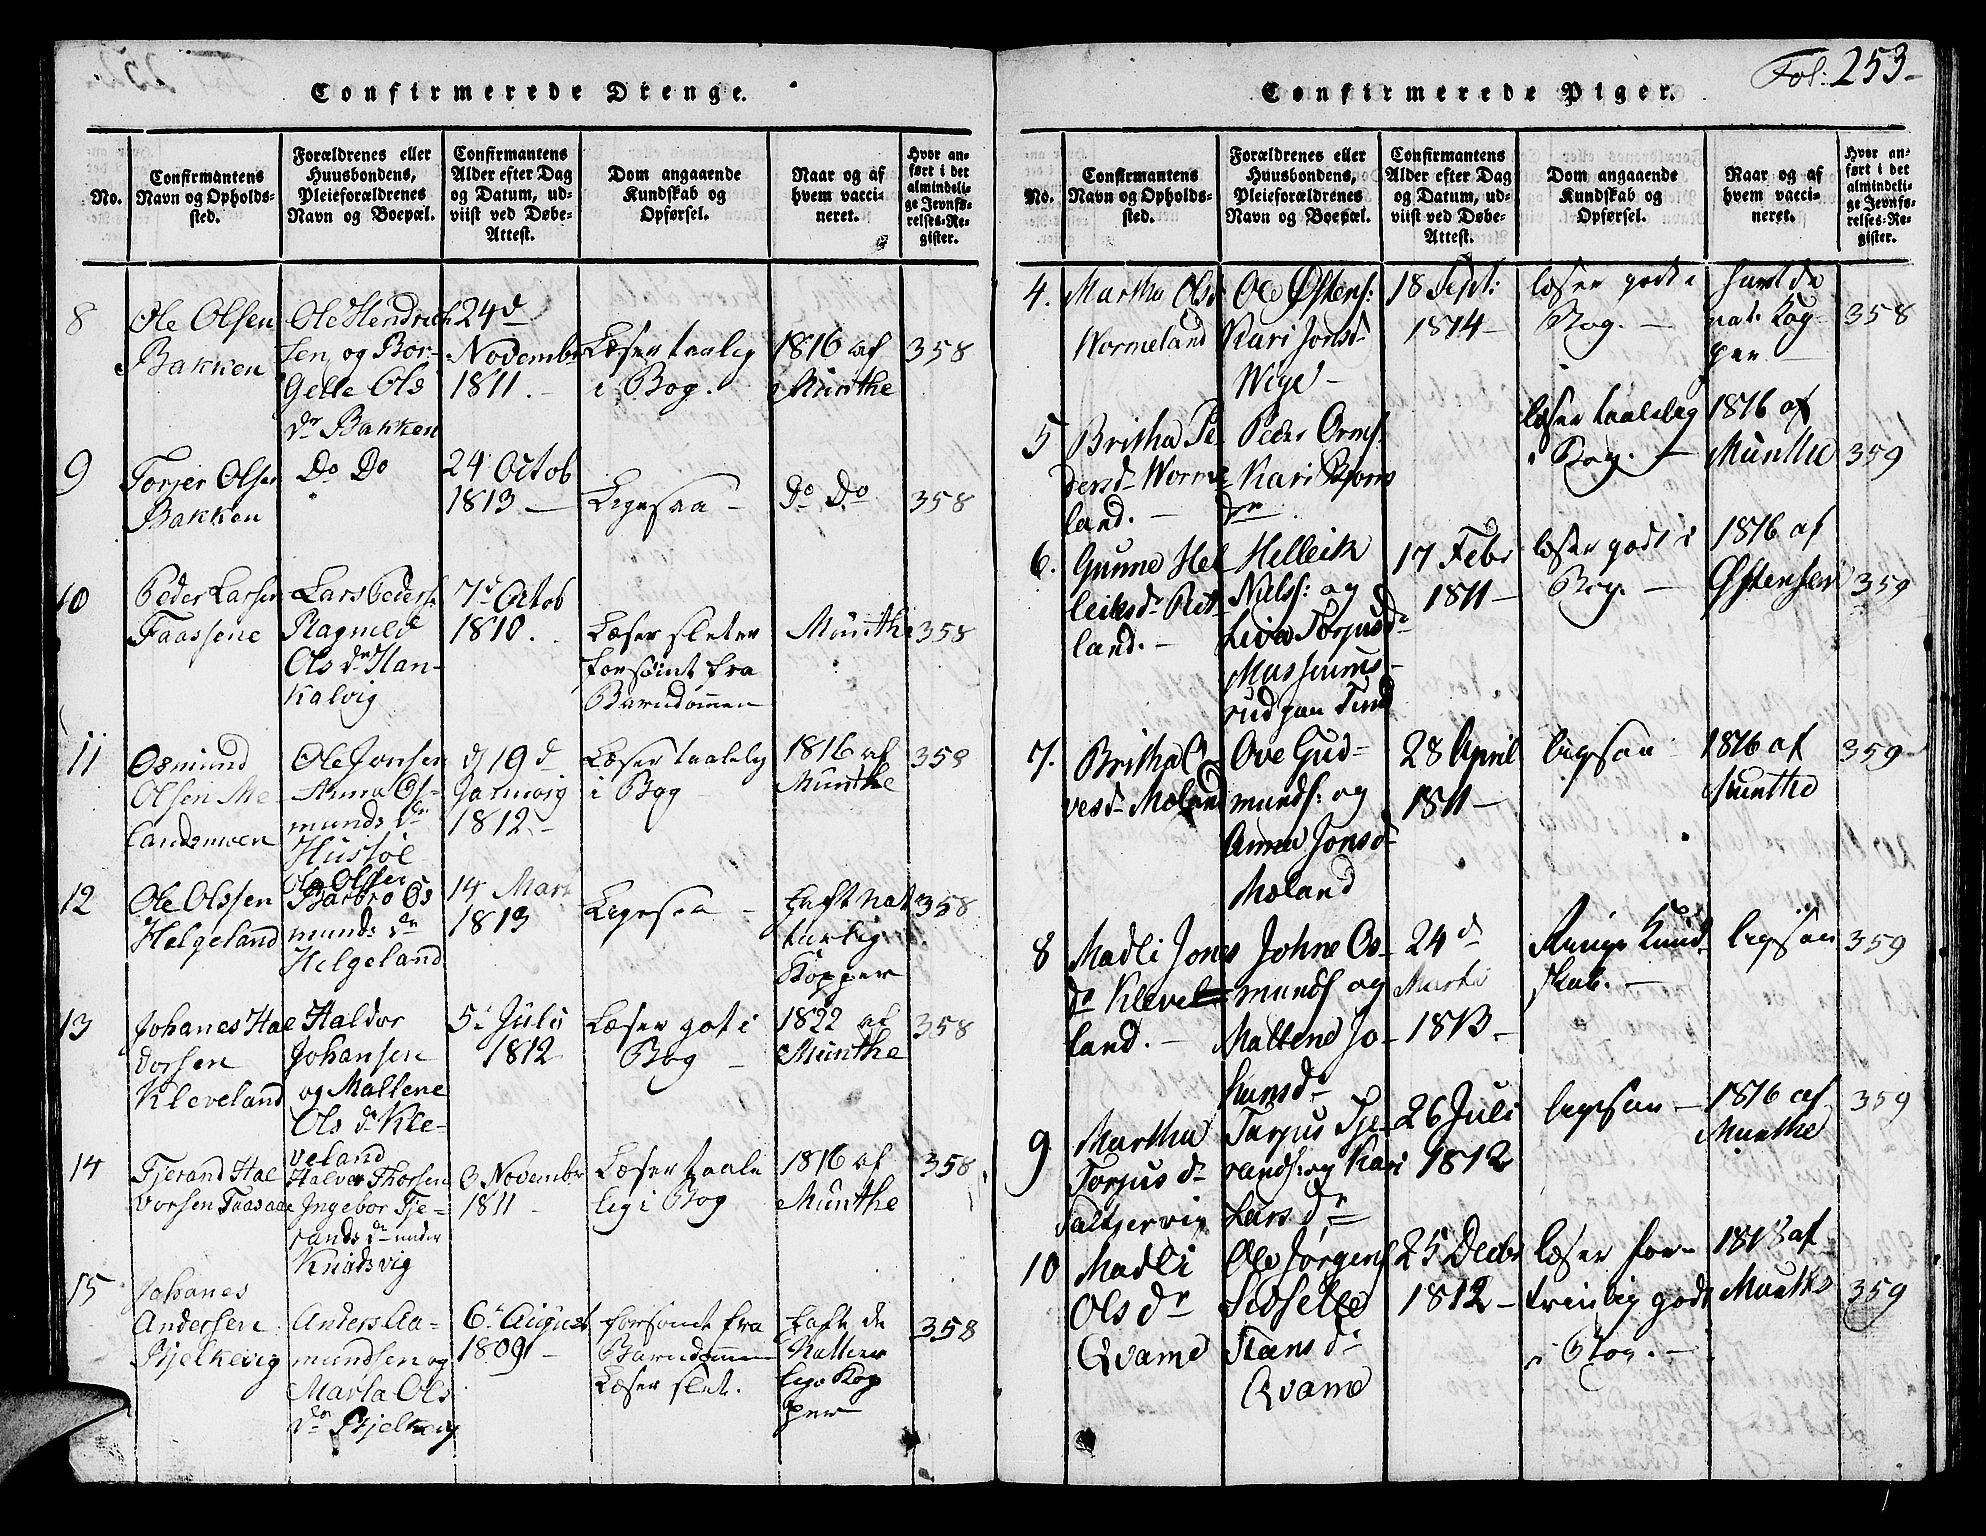 Confirmerede Drenge.
No.
Confirmantens
Navn og Opholds-
sted.
Forældrenes eller
Huusbondens,
Pleieforældrenes
Navn og Boepæl.
Confirmantens
Alder efter Dag
og Datum, ud-
viist ved Døbe-
Attest.
Dom angaaende
Kundskab og
Opførsel.
Naar og af
hvem vacci-
neret.
Hvor an-
ført i det
almindeli-
ge Jevnfø-
relses-Re-
gister.
8
Ole Olsen
Bakken
Ole Hendrich
sen, og Bor-
Gelle Ols
dr Bakken
24d
Novembr
1811.
Læser taalig
i Bog.
1816 af
Munthe
358
9
Torjer Olsen
Bakken
Do Do
24 Octob
1813
Ligesaa
Do Do
358
10
Peder Larsen
Faassene
Lars Peders:
Ragnild
Ols dr Han-
kalvig
7d Octob
1810.
Læser sleter
forsømt fra
Barndommen
Munthe
358
11
Osmund
Olsen Me
landsmoen
Ole Jonsen
Anna Os-
munds dr
Hustøl
d 19d
1812
Læser taalelig
i Bog
1816 af
Munthe
358
12
Ole Olssen
Helgeland
Ole Olsen
Barbro Os
munds dr
Helgeland
14 Mart
1813
Ligesaa
haft nat
turlig
Kopper
358
13
Johanes Hal
dorsen
Kleveland
Haldor
Johansen
og Mallene
Ols dr Kle-
veland
5. Juli
1812
Læser got i
Bog
1822 af
Munthe
358
14
Tjerand Hal
vorsen Faasaae
Halver Thorsen
Ingebor Tje-
rands dr under
Knudsvig
3 Novembr
1811
Læser taale
lig i Bog
1816 af
Munthe
358
15
Johanes
Andersen
Bjelkevig
Anders Aa-
mundsen og
Marta Ols
dr Bjelkevig
6. August
1809
forsømt fra
Barndommen
Læser slet.
hafte de
Nattur
lige Kop
per
358
Fol: 253
Confirmerede Piger.
No.
Confirmantens
Navn og Opholds-
sted.
Forældrenes eller
Huusbondens,
Pleieforældrenes
Navn og Boepæl.
Confirmantens
Alder efter Dag
og Datum, ud-
viist ved Døbe-
Attest.
Dom angaaende
Kundskab og
Opførsel.
Naar og af
hvem vacci-
neret.
Hvor an-
ført i det
almindeli-
ge Jevnfø-
relses-Re-
gister.
4.
Martha Olsd
Wormeland
Ole Østens:
Kari Jonsd
Wige
18 Sept:
1814
læser godt i
Bog.
havt de
nat. Kop-
per
358
5
Britha Pe
dersdr Worme
land.
Peder Orms:
Kari Bjorns
dr
læser taaleleg
i Bog.
1816 af
Munthe
359
6.
Gunne Hel
leiksdr Ret
land.
Helleik
Nilss: og
Liva Torjusdr
17 Febr
1811
læser godt i
Bog.
1816 af
Østensen
359
7.
Britha O
vesdr Moland
Ove Gud-
munds: og
Anna Jonsd
Moland
28 April
1811
ligesaa
1816 af
Munthe
359
8
Madli Jons
dr Klevel
land.
Johne Os-
munds og
Mallene Jo-
hansdr
24d
Marti
1813
Ringe Kund
skab.
ligesaa
359
9
Martha
Torjus dr
Saltjervig
Torjus Tje-
rands: og Kari
Lars dr
26 Juli
1812
ligesaa
1816 af
Munthe
359
10
Madli
Ols dr
Qvame
Ole Jørgens
Sidselle
Stens dr
Qvame
25 Decbr
1812
læser for-
trinlig godt
i Bog.
1818 af
Munthe
359